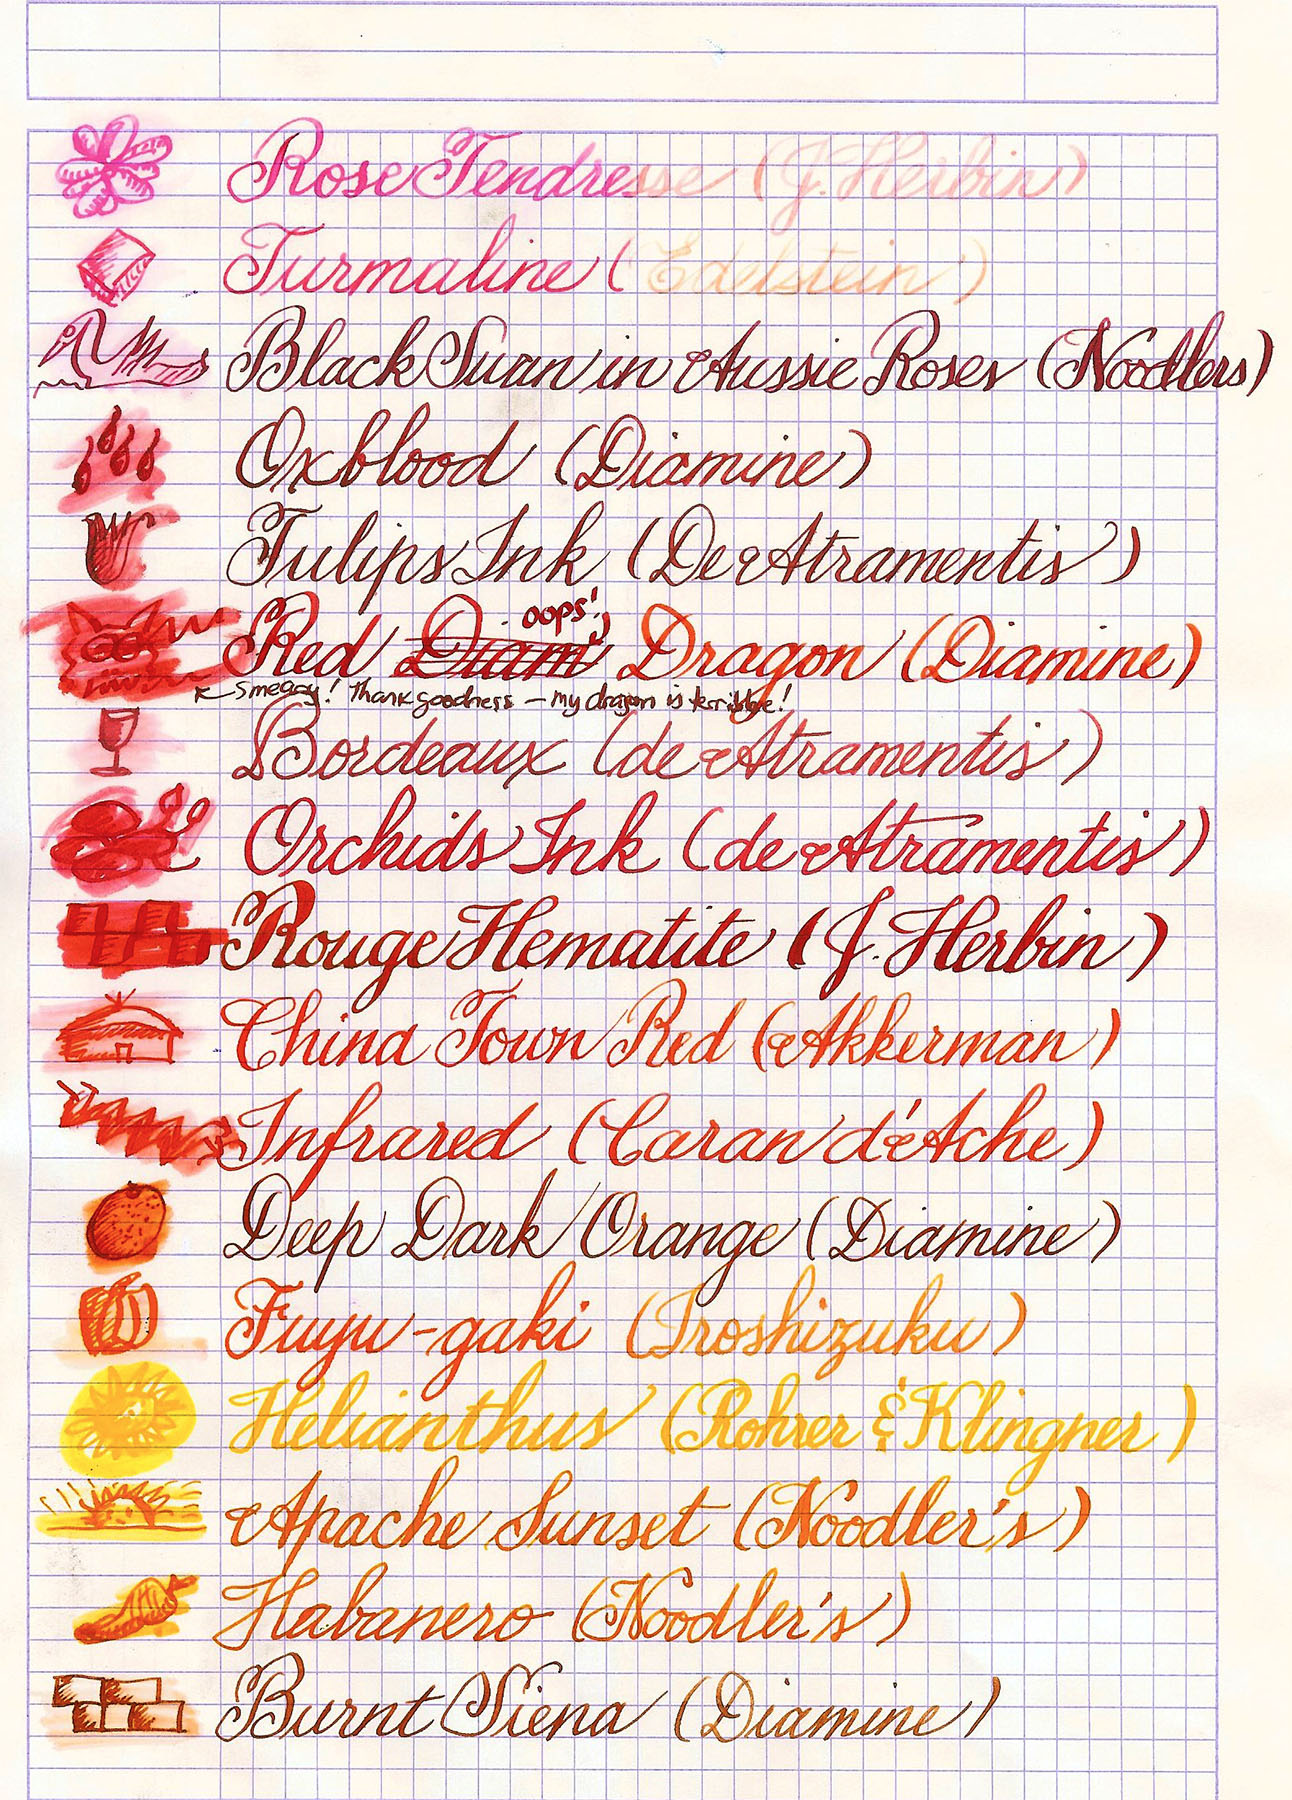 Rose Tendresse (J. Herbin)
Turmaline (Edelstein)
Black Swan in Aussie Roses (Noodlers)
Oxblood (Diamine)
Tulips Ink (De Atramentis)
oops!
Red Diam Dragon (Diamine)
smeary! Thank goodness — my dragon is terrible!
Bordeaux (de Atramentis)
Orchids Ink (de Atramentis)
Rouge Hematite (J. Herbin)
China Town Red (Akkerman)
Infrared (Caran d'Ache)
Deep Dark Orange (Diamine)
Fuyu-gaki (Iroshizuku)
Helianthus (Rohrer & Klingner)
Apache Sunset (Noodler's)
Habanero (Noodler's)
Burnt Siena (Diamine)